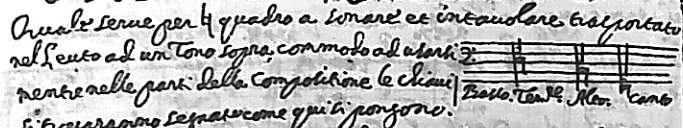 Quale serue per ♮ quadro a sonare et intauolare trasportato
nel Leuto ad un Tono sopra commodo ad usarsi
mentre nelle parti della Compositione le chiaui
si troueranno segnate come qui si pongono.
Basso. Ten.re Alto. Canto